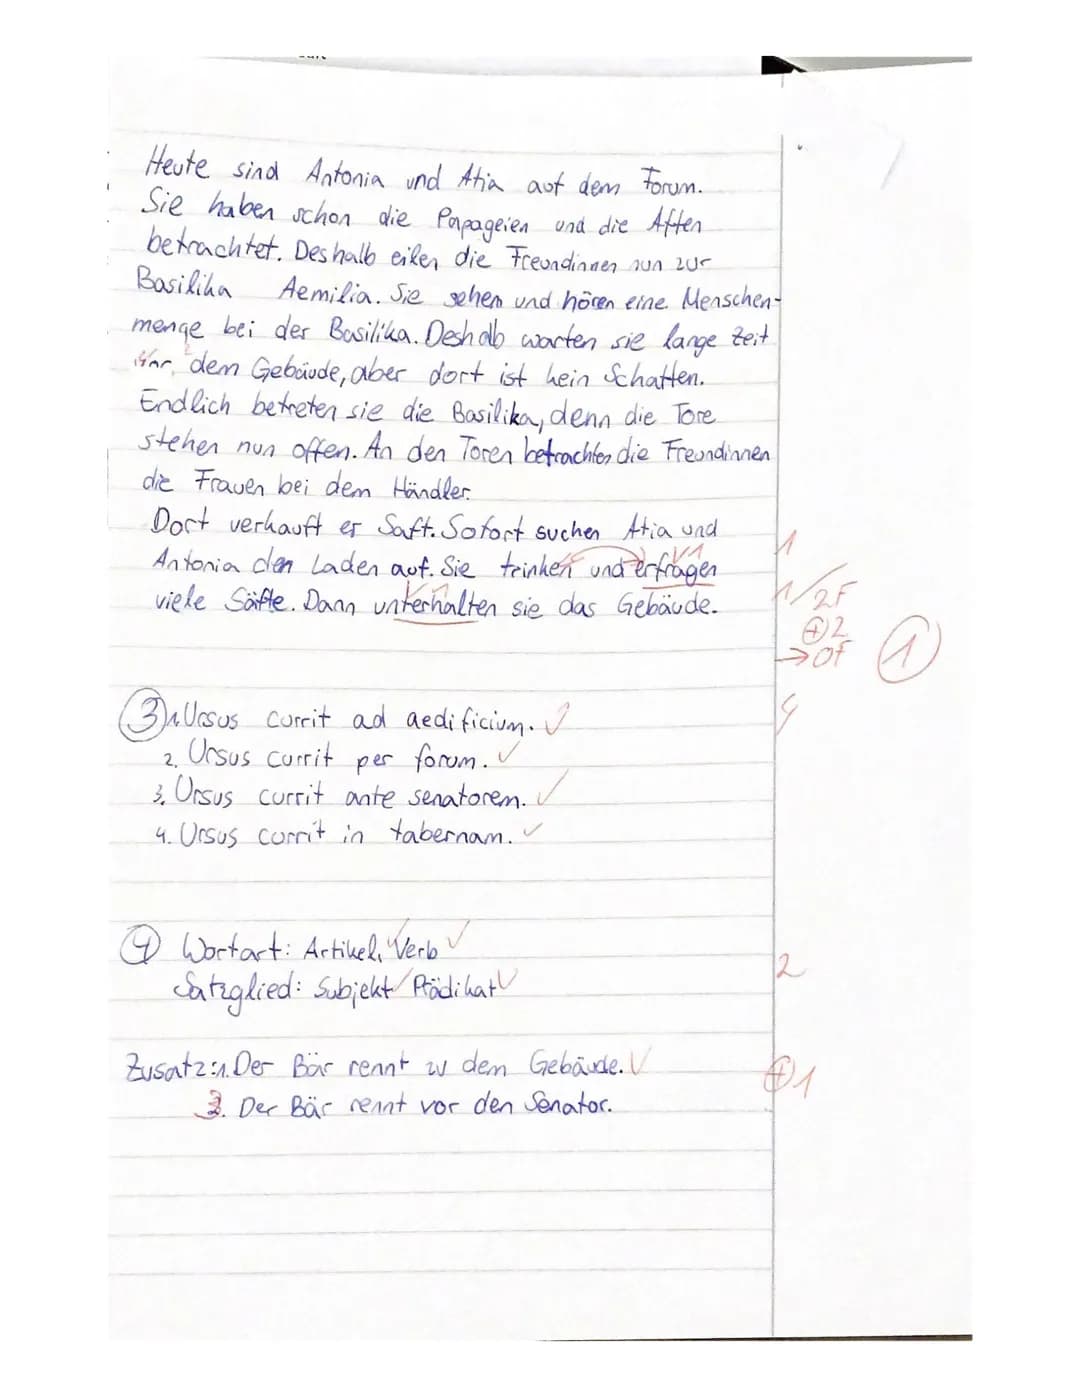 Heute sind Antonia und Atia auf dem Forum.
Sie haben schon die Papageien und die Affen
betrachtet. Deshalb eilen die Freundinnen nun zur
Basilika Aemilia. Sie sehen und hören eine Menschen-
menge bei der Basilika. Deshalb warten sie lange Zeit
vor dem Gebäude, aber dort ist kein Schatten.
Endlich betreten sie die Basilika, denn die Tore
stehen nun offen. An den Toren betrachten die Freundinnen
die Frauen bei dem Händler.
Dort verkauft er Saft. Sofort suchen Atia und
Antonia den Laden auf. Sie trinken und erfragen
viele Säfte. Dann unterhalten sie das Gebäude.
1
1
1/2F
⊕2
→0F
1
1
③ 1. Ursus currit ad aedificium. ✓
2. Ursus currit per forum. ✓
3. Ursus currit ante senatorem. ✓
4. Ursus currit in tabernam. ✓
4
④ Wortart: Artikel, ✓ Verb ✓
Satzglied: Subjekt ✓ Prädikat ✓
2
Zusatz: 1. Der Bär rennt zu dem Gebäude. ✓
3. Der Bär rennt vor den Senator.
⊕1